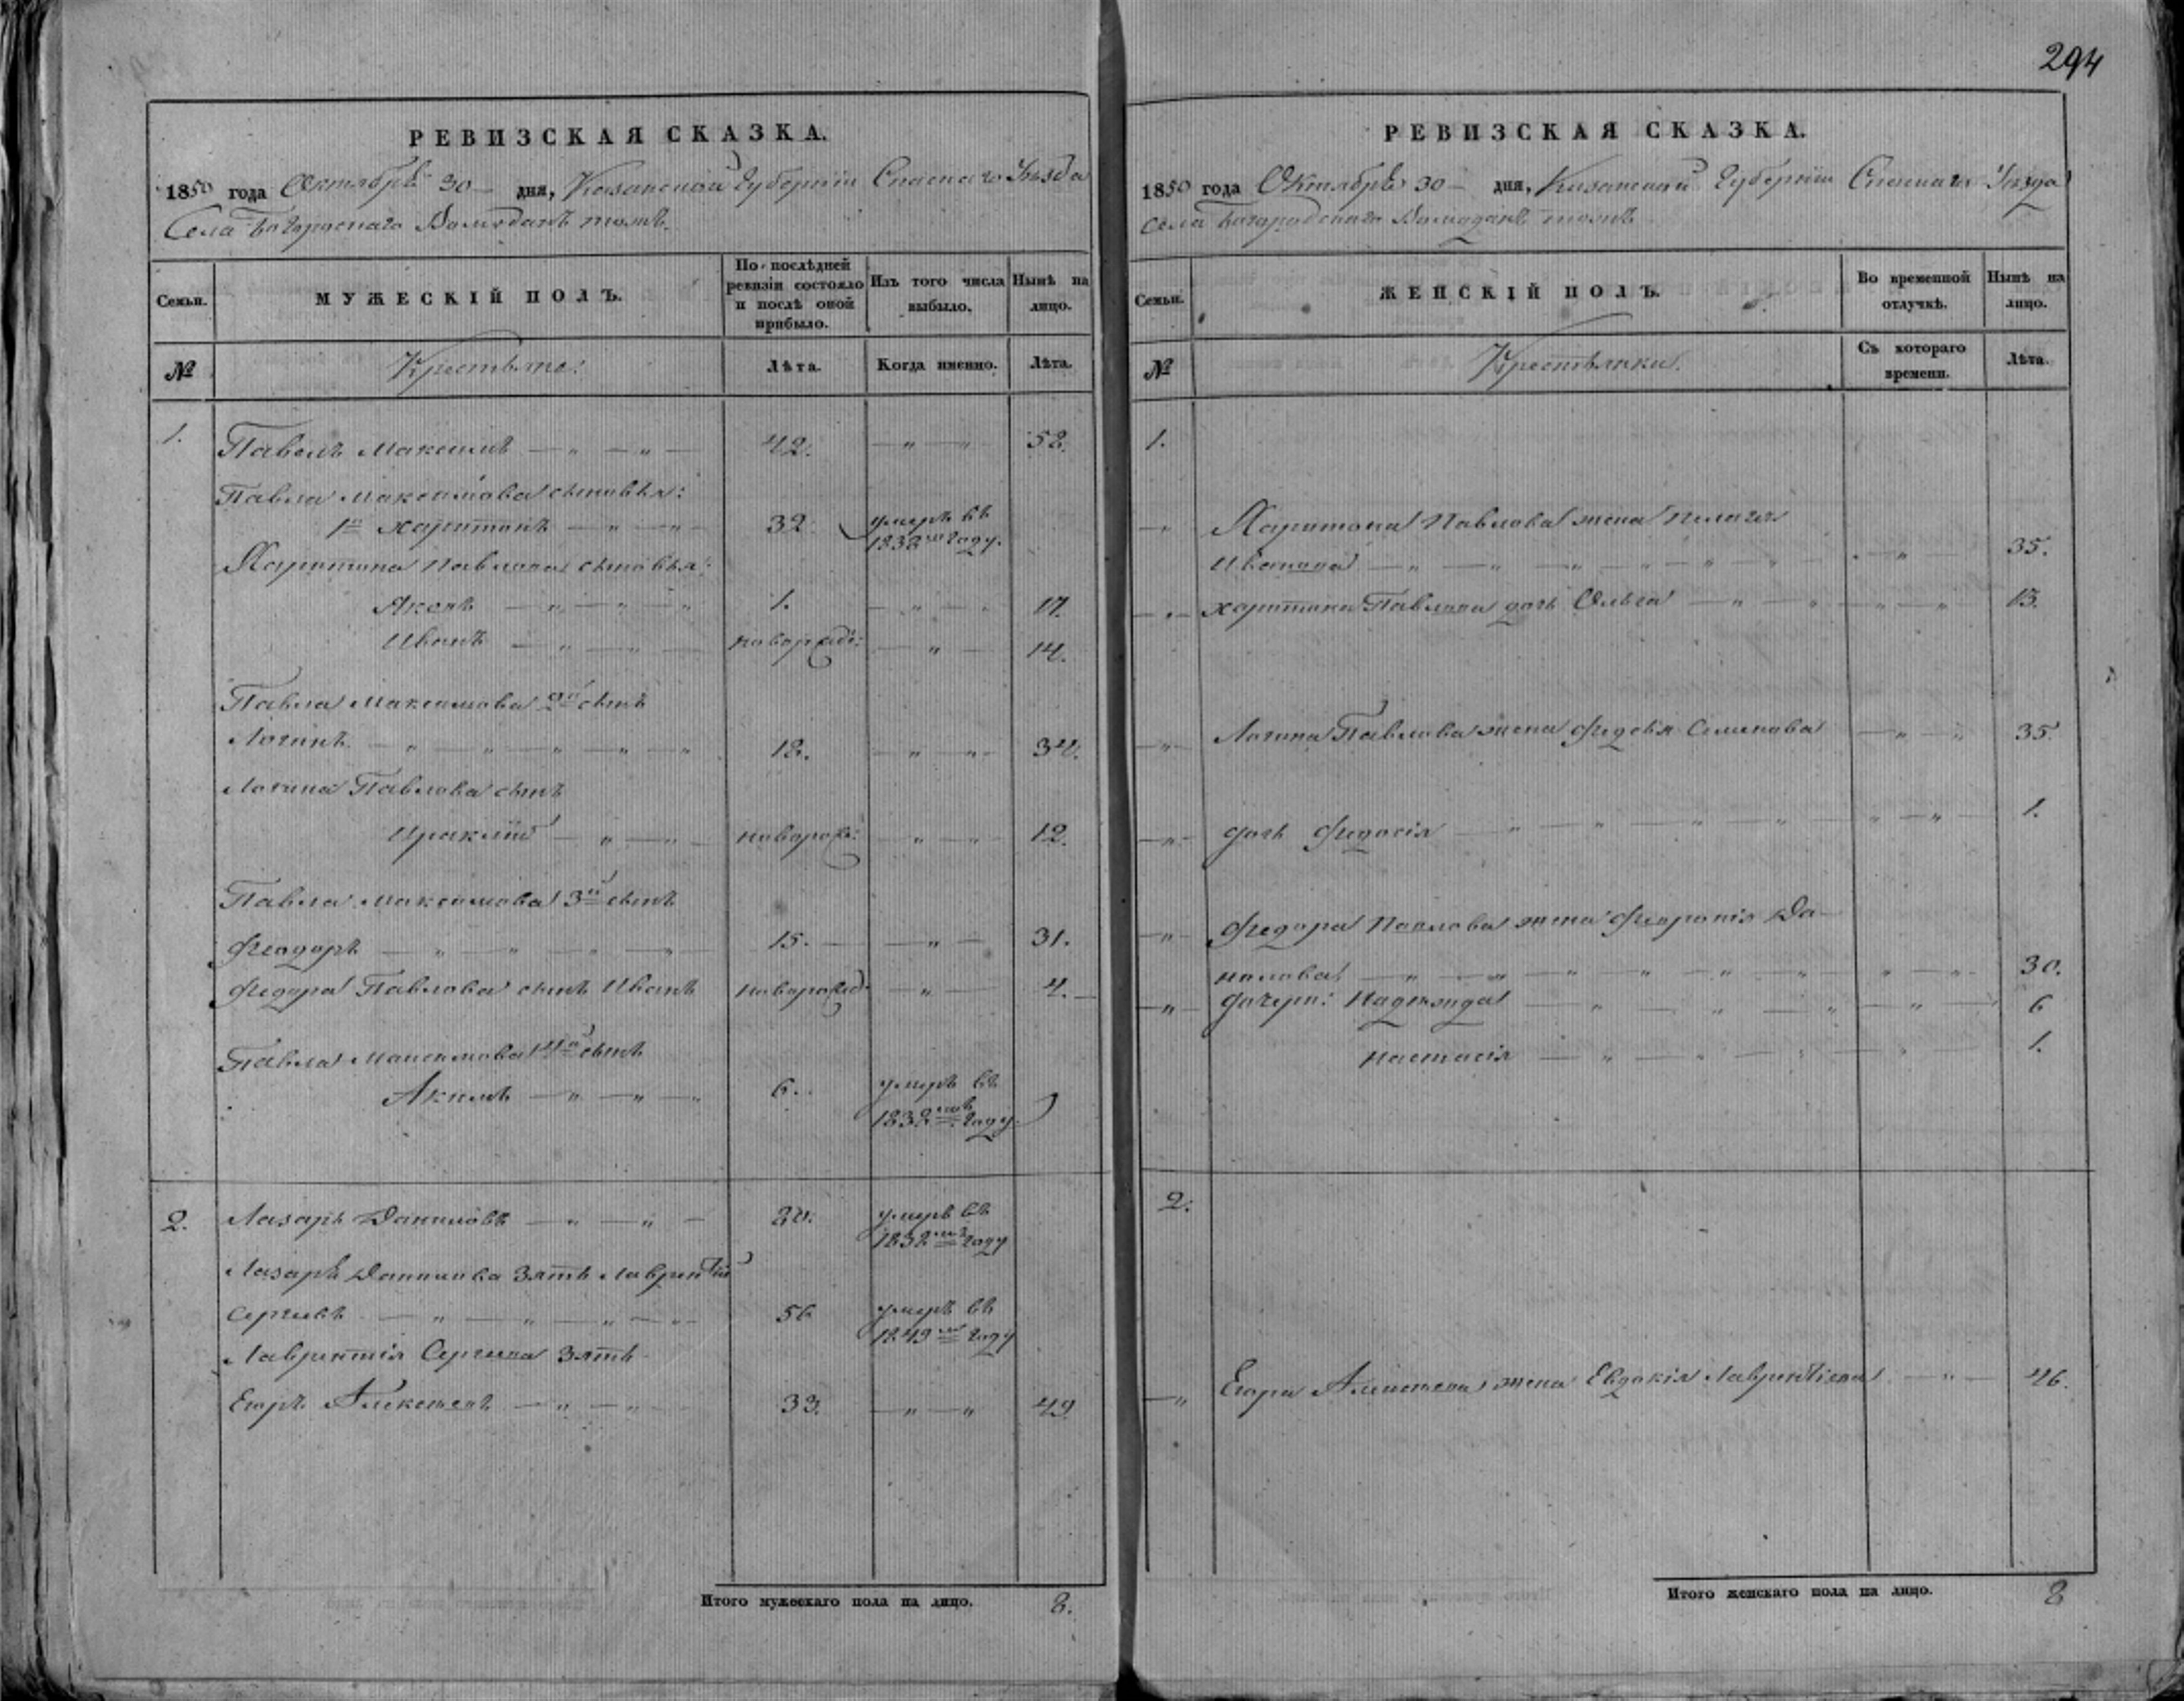 294
РЕВИЗСКАЯ СКАЗКА.
1850 года Октября 30 дня, Казанской Губернiи Спаскаго Уѣзда
Села Богородскаго
Семьи.
МУЖЕСКIЙ ПОЛЪ.
По послѣдней ревизiи состояло и послѣ оной прибыло.
Изъ того числа выбыло.
Нынѣ на лицо.
№
Крестьяне:
Лѣта.
Когда именно.
Лѣта.
1. Павелъ Максимъ — „ — „ — 42. — „ — „ 58.
Павла Максимова сыновья:
1й Харитонъ — „ — „ 32. умеръ въ
1838м году.
Харитона Павлова сыновья:
Яковъ — „ — „ — „ 1. — „ — 17.
Иванъ — „ — „ — новорожд: — „ — 14.
Павла Максимова 2й сынъ
Логинъ — „ — „ — „ — „ — „ 18. — „ — „ 34.
Логина Павлова сынъ
Ираклiй — „ — „ — новорож: — „ — „ 12.
Павла Максимова 3й сынъ
Феодоръ — „ — „ — „ — „ 15. — „ — 31.
Федора Павлова сынъ Иванъ новорожд: — „ — 4.
Павла Максимова 4й сынъ
Акимъ — „ — „ — „ 6. умеръ въ
1838мъ году.
2. Лазарь Даниловъ — „ — „ — умеръ въ
1838мъ году
Лазаря Данилова зять Лаврентiй
Сергѣевъ — „ — „ — „ — „ 56 умеръ въ
1849м году
Лаврентiя Сергѣева зять
Егоръ Алексѣевъ — „ — „ 33. — „ — „ 49
Итого мужескаго пола на лицо. 8.
РЕВИЗСКАЯ СКАЗКА.
1850 года Октября 30 дня, Казанской Губернiи Спаскаго Уѣзда
Села Богородскаго
Семьи.
ЖЕНСКIЙ ПОЛЪ.
Во временной отлучкѣ.
Нынѣ на лицо.
№
Крестьянки.
Съ котораго времени.
Лѣта.
1.
— „ Харитона Павлова жена Пелагея
Иванова — „ — „ — „ — „ — „ — „ 35.
— „ — Харитона Павлова дочь Ольга — „ — „ — „ 13.
— „ — Логина Павлова жена Федосья Семенова — „ — „ 35.
— „ — дочь Федосiя — „ — „ — „ — „ — „ — „ 1.
— „ — Федора Павлова жена Феоронiя Да-
нилова — „ — „ — „ — „ — „ — „ 30.
— „ — дочери: Надежда — „ — „ — „ — „ — 6
Настасiя — „ — „ — „ — „ 1.
2.
— „ Егора Алексѣева жена Евдокiя Лаврентiева — „ — 46.
Итого женскаго пола на лицо. 8